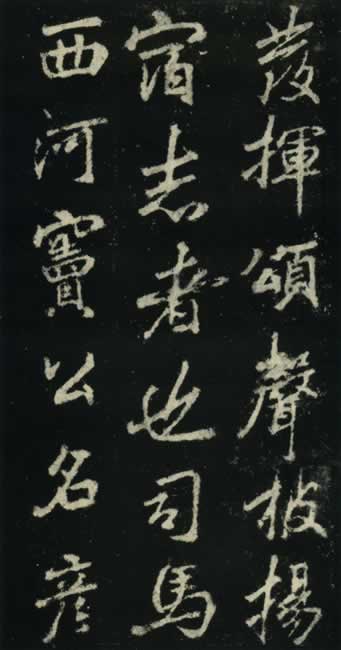 發揮頌聲披揚
宿志者也司馬
西河竇公名彥